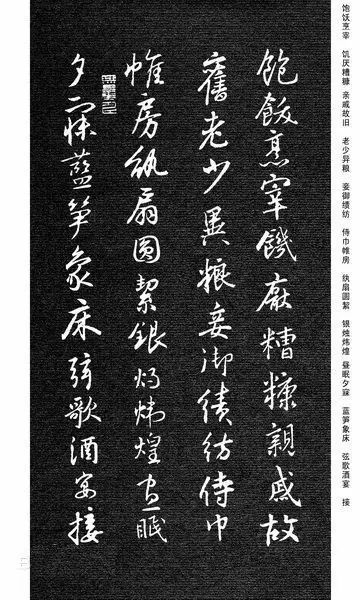 饱饫烹宰 饥厌糟糠 亲戚故旧 老少异粮 妾御绩纺 侍巾帷房 纨扇圆絜 银烛炜煌 昼眠夕寐 蓝笋象床 弦歌酒宴 接
飽飫烹宰饑厭糟糠親戚故
舊老少異粮妾御績紡侍巾
帷房紈扇圓絜銀烛煒煌昼眠
夕寐藍笋象床弦歌酒宴接